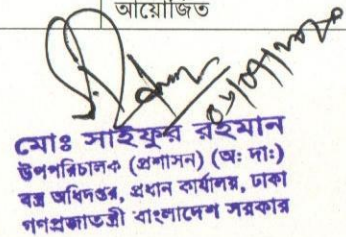 আয়োজিত
মোঃ সাইফুর রহমান
উপপরিচালক (প্রশাসন) (অঃ দাঃ)
বস্ত্র অধিদপ্তর, প্রধান কার্যালয়, ঢাকা
গণপ্রজাতন্ত্রী বাংলাদেশ সরকার